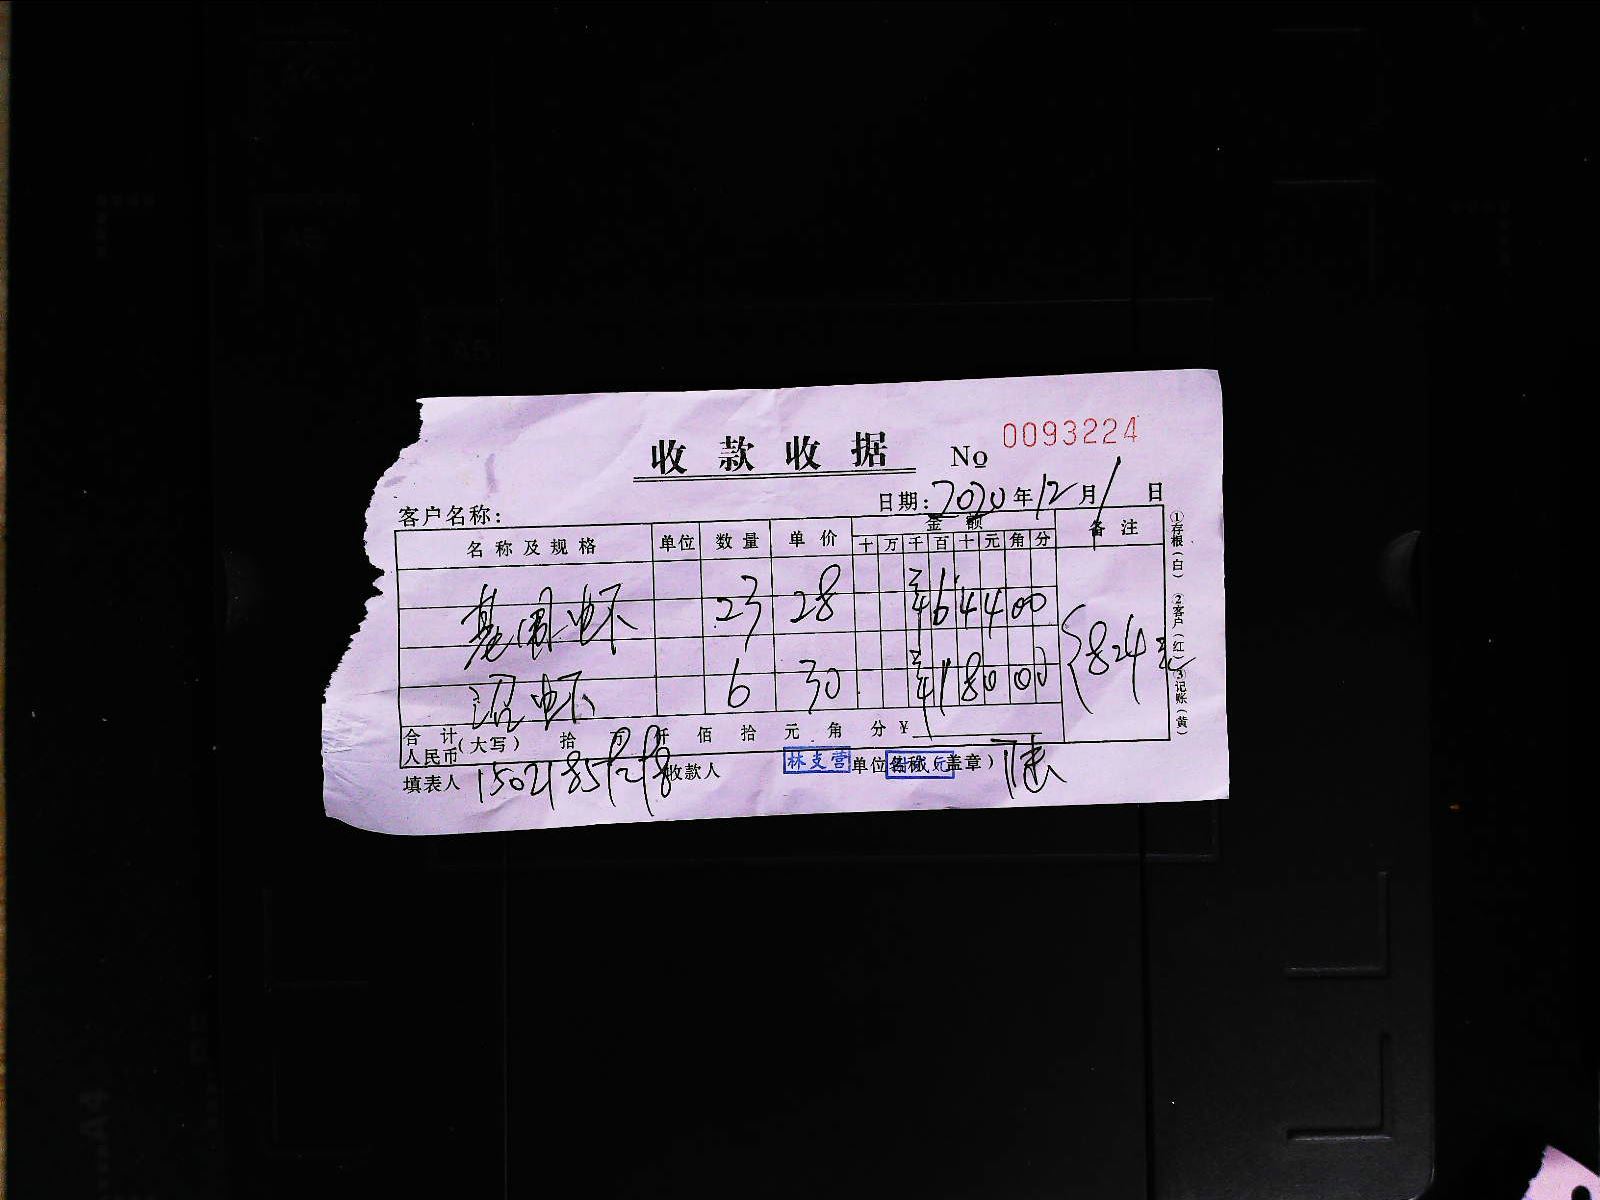 收款收据 No 0093224
客户名称: 日期: 2020 年 12 月 1 日
名称及规格 单位 数量 单价 金额 备注
十 万 千 百 十 元 角 分
基围虾 23 28 ¥ 6 4 4 0 0
沼虾 6 30 ¥ 1 8 0 0 0
824元
合计人民币(大写) 拾 万 仟 佰 拾 元 角 分 ¥
填表人 收款人 林支营 单位名称(盖章) 陈
①存根(白) ②客户(红) ③记账(黄)